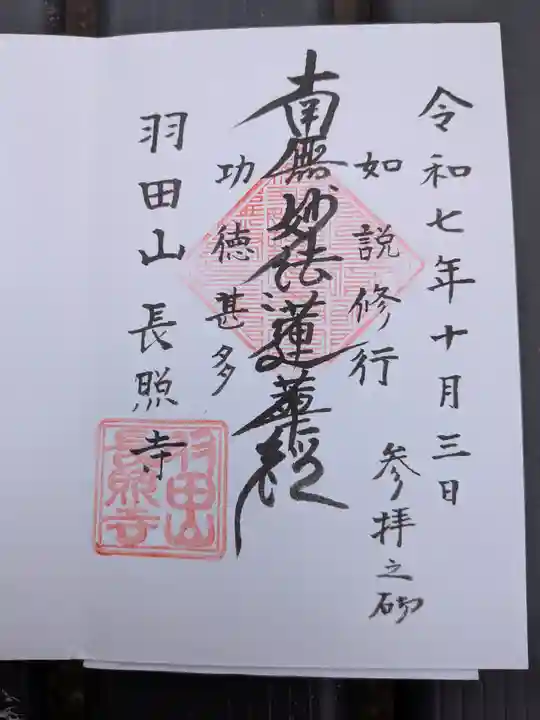 令和七年十月三日
参拝之砌
如説修行
南無妙法蓮華経
功徳甚多
羽田山 長照寺
羽田山
長照寺